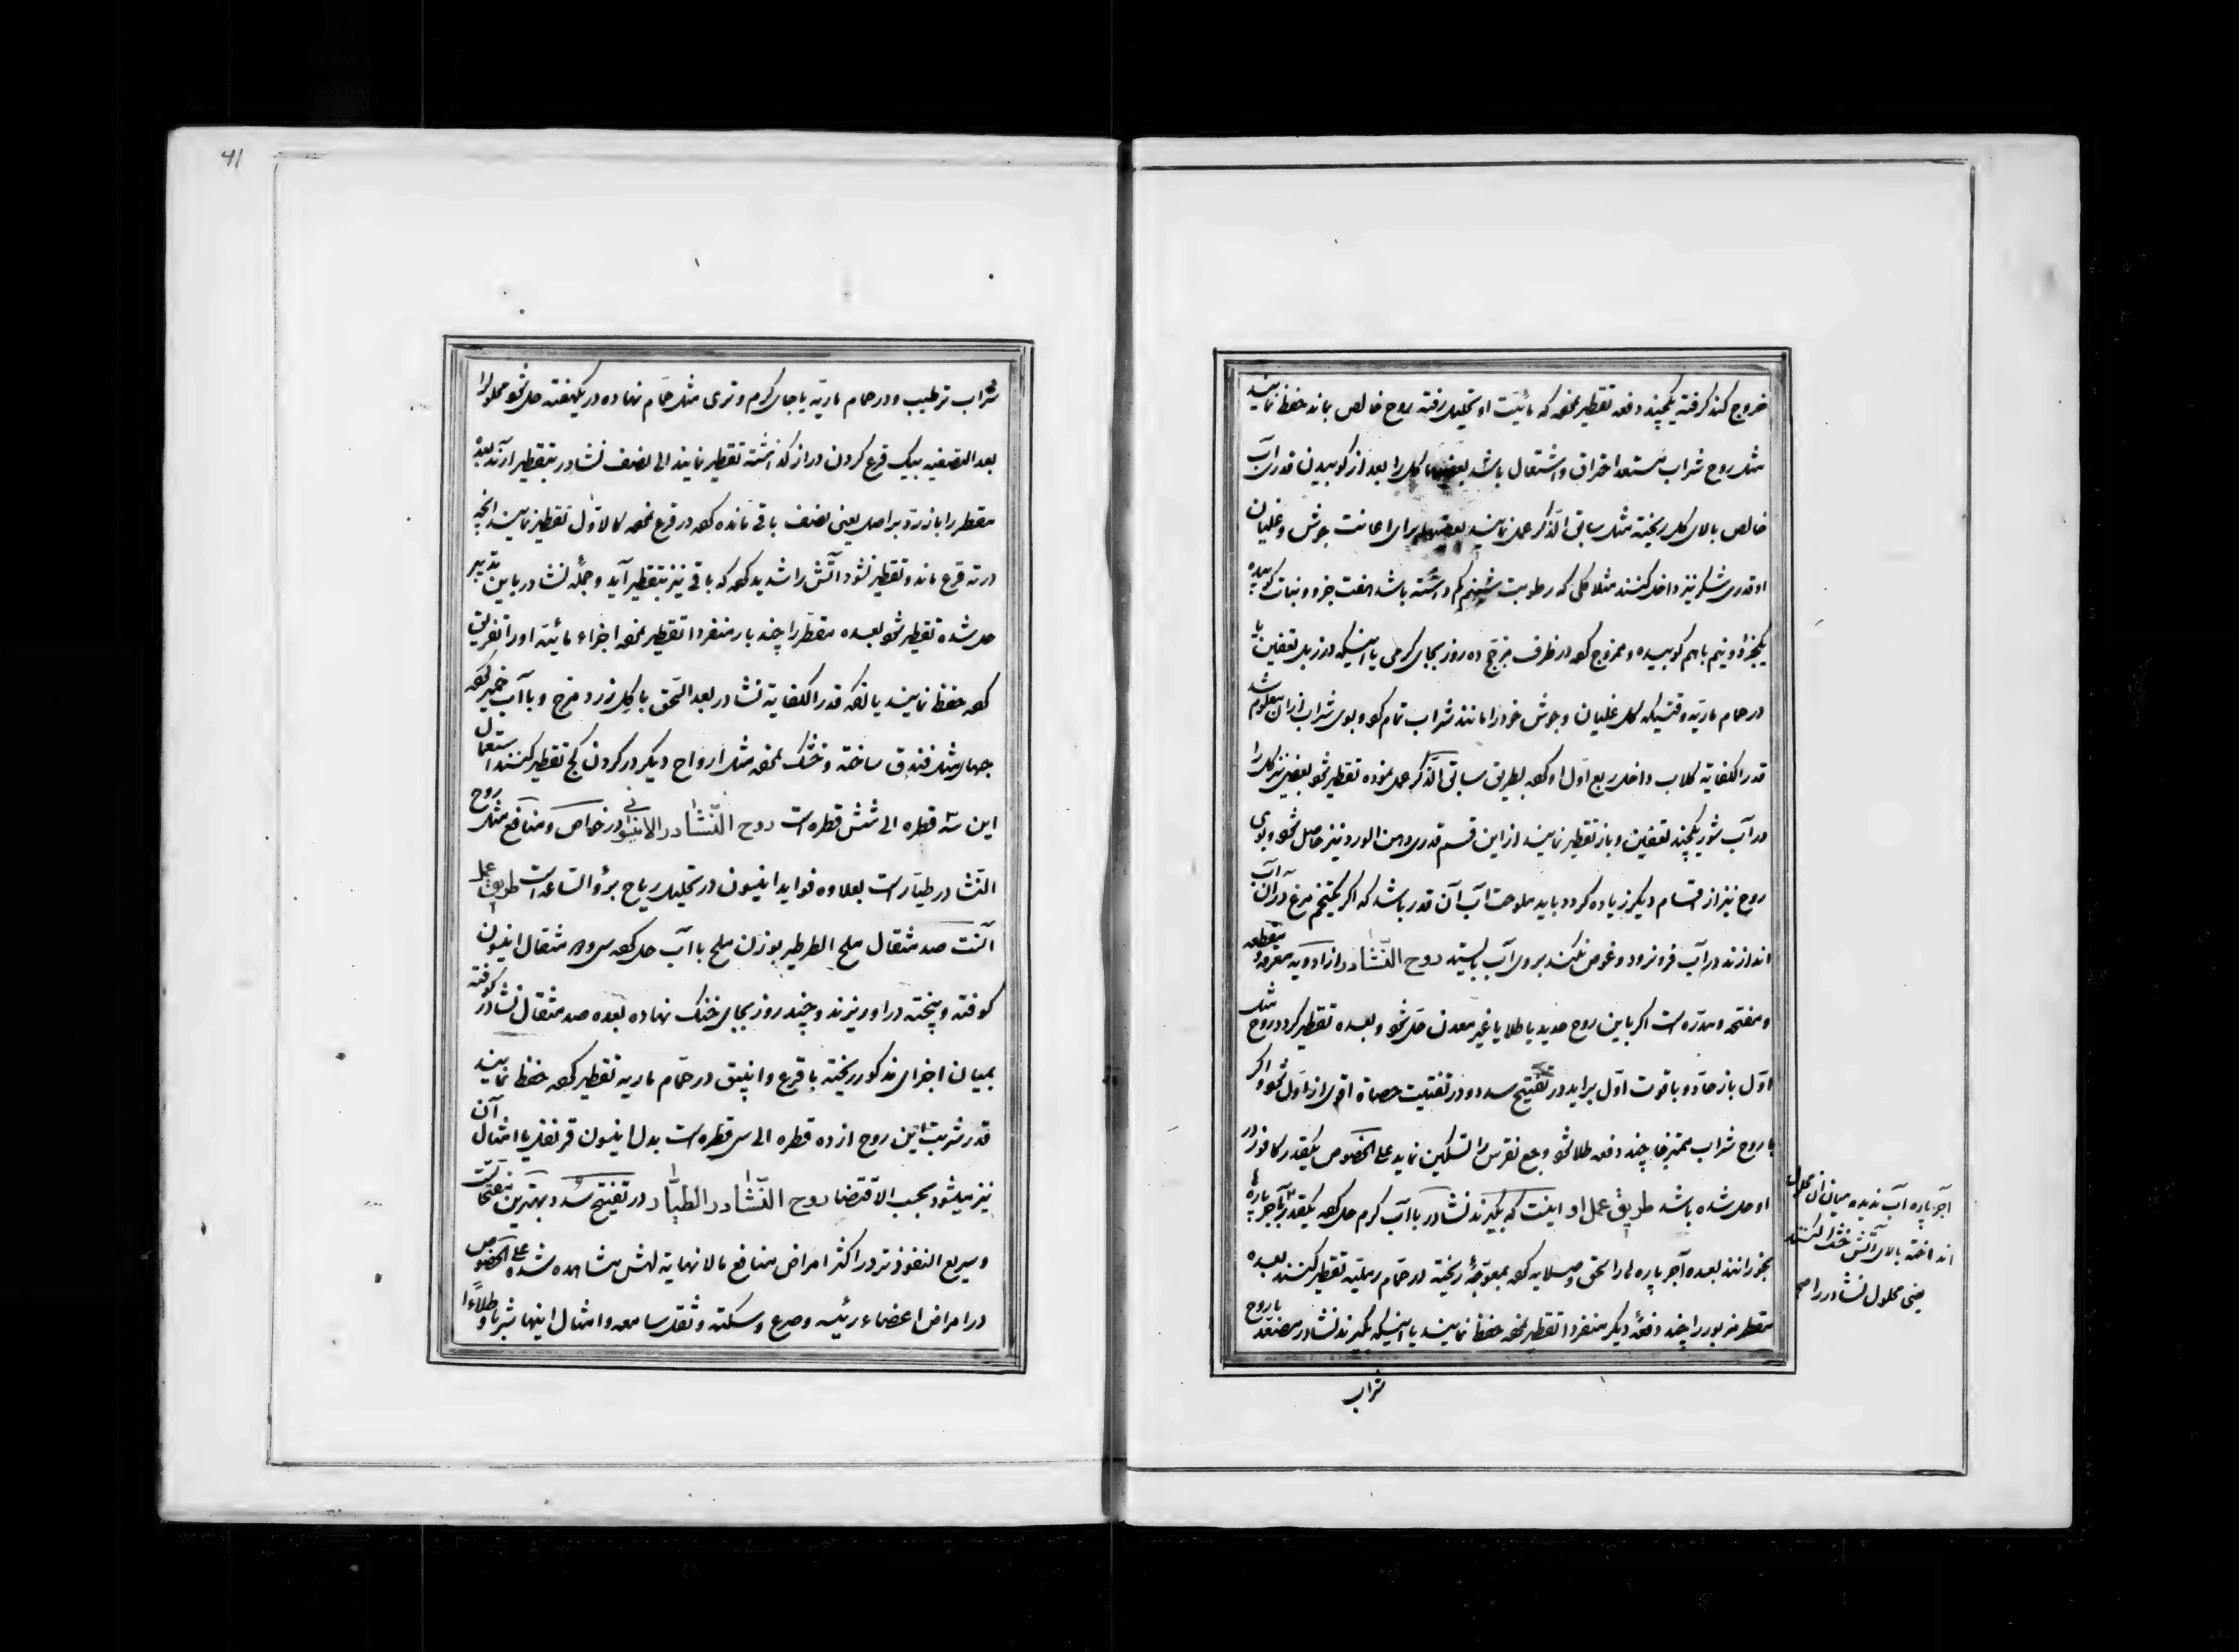 خروج کند گرفته یکچند دفعه تقطیر نموده که مائیت او تحلیل رفته روح خالص بماند حفظ نمایند
مثل روح شراب مستعد احتراق و اشتعال باشد بعضیها کل را بعد از کوبیدن قدری آب
خالص بالای کل ریخته مثل سابق الذکر عمل نمایند بعضیها برای اعانت جوش و غلیان
او قدری شکر نیز داخل کنند مثلا کلی که رطوبت شبنم کم داشته باشد هفت جزو و نبات کوبیده
یکجزو و نیم باهم کوبیده و ممزوج کرده در ظرف مزجج ده روز بجای کرمی یا اینکه در زبل تعفین یا
در حمام ماریه وقتیکه کل غلیان و جوش خود را مانند شراب تمام کرد و بوی شراب از آن معلوم شد
قدر الکفایه کلاب داخل ربع اول او کرده بطریق سابق الذکر عمل نموده تقطیر شود بعضی نیز کل را
در آب شور یکچند تعفین و باز تقطیر نمایند از این قسم قدری دهن الورد نیز حاصل شود و بوی
روح نیز از اقسام دیگر زیاده کردد باید ملوحت آب آن قدر باشد که اگر یکتخم مرغ در آن آب
اندازند در آب فرو نرود و غوص نکند بروی آب بایستد روح النشادر از ادویه معرقه و مقطعه
و مفتحه و مدره است اگر باین روح حدید یا طلا یا غیر معدن حل شود و بعده تقطیر کردد روح مثل
اول باز حاد و با قوت اول براید در تفتیح سدد و در تفتیت حصاة اقوی از اول شود و اکر
با روح شراب ممتزجا چند دفعه طلا شود وجع نقرس را تسکین نماید علی الخصوص یکقدر کافور در
او حل شده باشد طریق عمل او اینست که بگیرند نشادر با آب کرم حل کرده یکقدر آجر پاره ها
بخورانند بعده آجر پاره ها را سحق و صلایه کرده بمعوجه ریخته در حمام رملیه تقطیر کنند بعده
مقطر مزبور را چند دفعه دیگر منفردا تقطیر نموده حفظ نمایند یا اینکه بگیرند نشادر مصعد با روح
شراب
آجر پاره آب ندیده میان آن محلول
انداخته بالای آتش خشک کنند
یعنی محلول نشادر را
41
شراب ترطیب و در حمام ماریه یا جای کرم و تری مثل حمام نهاده در یکهفته حل شود محلول را
بعد التصفیه بیک قرع کردن دراز گذاشته تقطیر نمایند الی نصف نشادر بتقطیر آرند بعده
مقطر را باز رد بر اصل یعنی نصف باقی مانده کرده در قرع نموده کالاول تقطیر نمایند آنچه
در ته قرع ماند و تقطیر نشود آتش را شدید کرده که باقی نیز بتقطیر آید و جمله نشادر باین تدبیر
حل شده تقطیر شود بعده مقطر را چند بار منفردا تقطیر نموده اجزاء مائیه او را تفریق
کرده حفظ نمایند یا آنکه قدر الکفایه نشادر بعد السحق با کل زرد مزج و با آب خمیر کرده
حبها مثل فندق ساخته و خشک نموده مثل ارواح دیگر در کردن کج تقطیر کنند استعمال
این سه قطره الی شش قطره است روح النشادر الانیسونی در خواص و منافع مثل روح
النشادر طیار است بعلاوه فواید انیسون در تحلیل ریاح برؤ الساعه است طریق عمل
آنست صد مثقال ملح الطرطیر بوزن ملح با آب حل کرده سی و دو مثقال انیسون
کوفته و پخته در او ریزند و چند روز بجای خنک نهاده بعده صد مثقال نشادر کوفته
بمیان اجزای مذکور ریخته با قرع و انبیق در حمام ماریه تقطیر کرده حفظ نمایند
قدر شربت این روح از ده قطره الی سی قطره است بدل انیسون قرنفل یا امثال آن
نیز میشود بحسب الاقتضا روح النشادر الطیار در تفتیح سدد بهترین مفتحات است
و سریع النفوذ تر در اکثر امراض منافع مالانهایه لهش مشاهده شده علی الخصوص
در امراض اعضاء رئیسه و صرع و سکته و ثقل سامعه و امثال اینها شربا و طلاءا